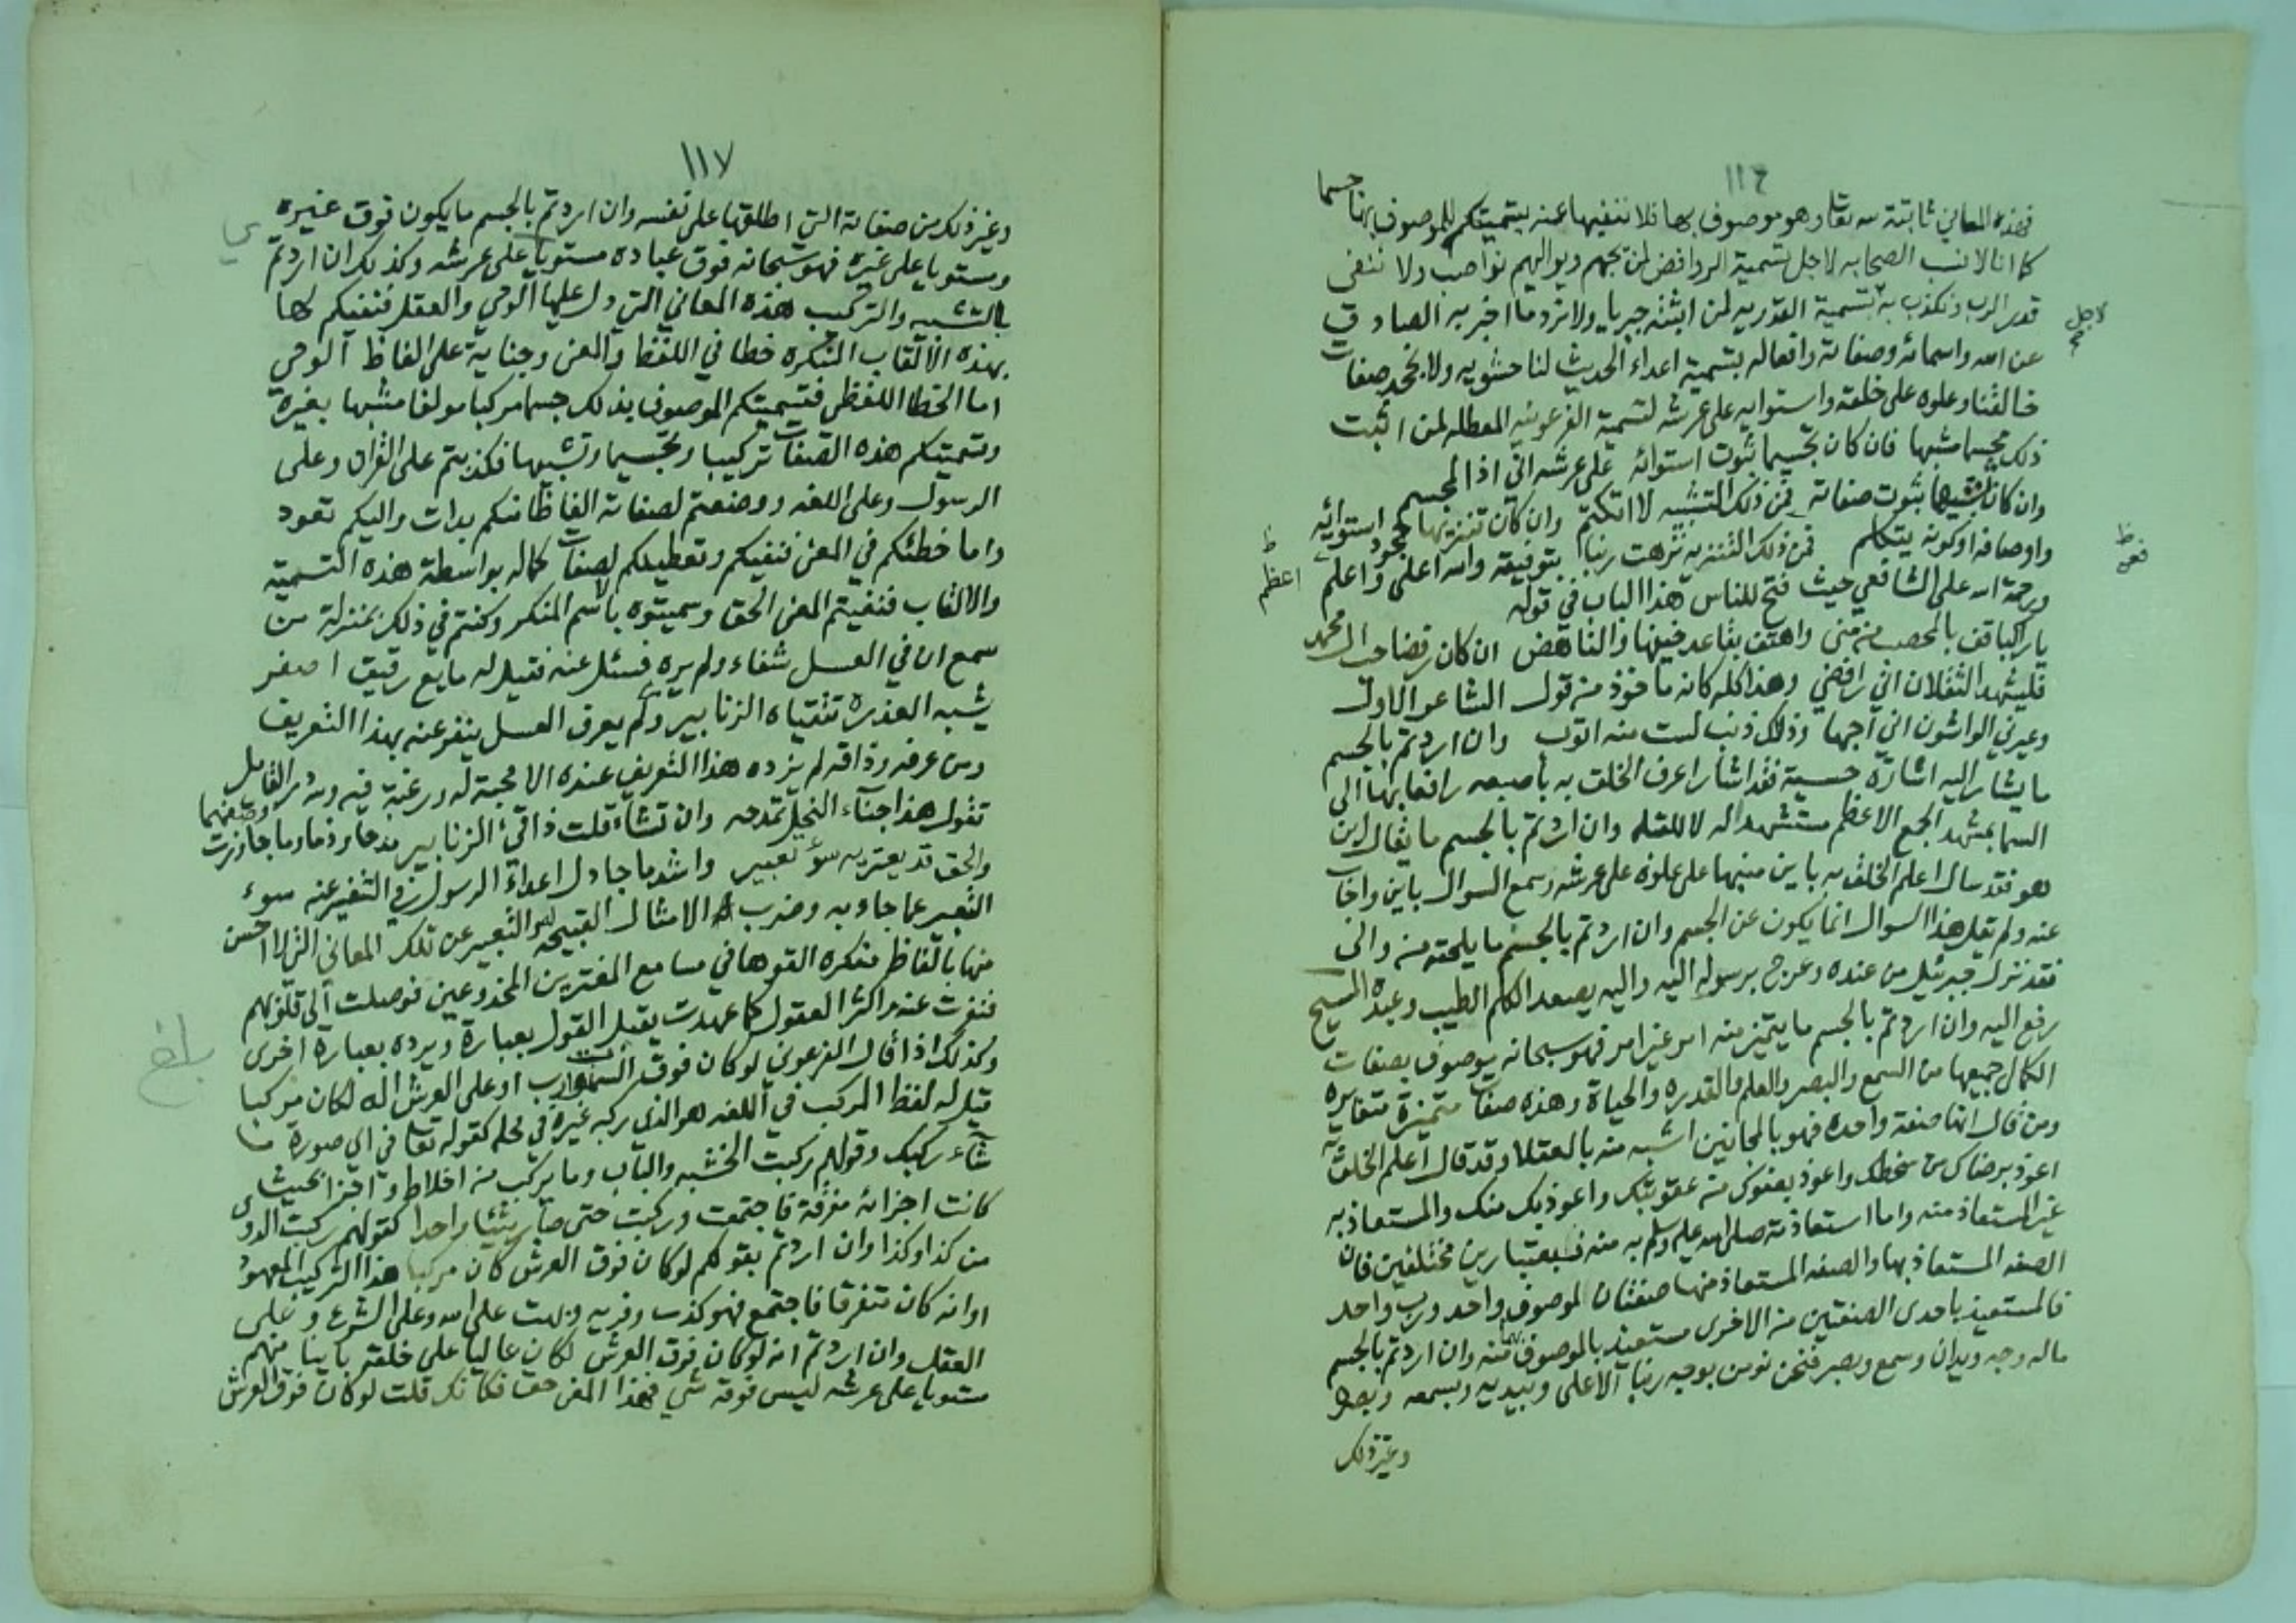 ١١٦
فهذه المعاني ثابتة لله تعالى وهو موصوف بها فلا ننفيها عنه بتسميتكم للموصوف بها جسما
كما انا لا نسب الصحابه لاجل تسمية الروافض لمن يحبهم ويواليهم نواصب ولا ننفى
قدر الرب ونكذب به بتسمية القدريه لمن اثبته جبريا ولا نرد ما اخبر به الصادق
لاجل
عن الله واسمائه وصفاته وافعاله بتسمية اعداء الحديث لنا حشويه ولا نجحد صفات
خالقنا وعلوه على خلقه واستوايه على عرشه لتسمية الفرعونيه المعطله لمن اثبت
ذلك مجسما مشبها فان كان تجسيما ثبوت استوائه على عرشه اني اذا لمجسم
وان كان تشبيها ثبوت صفاته فمن ذلك التشبيه لا اتكتم وان كان تنزيها جحود استوائه
واوصافه او كونه يتكلم فمن ذلك التنزيه نزهت ربنا بتوفيقه والله اعلى واعلم
ط
اعظم
ورحمة الله على الشافعي حيث فتح للناس هذا الباب في قوله
يا راكبا قف بالمحصب من منى واهتف بقاعد خيفها والناهض ان كان رفضا حب ال محمد
فليشهد الثقلان اني رافضي وهذا كله كانه ماخوذ من قول الشاعر الاول
وعيرني الواشون اني احبها وذلك ذنب لست منه اتوب وان اردتم بالجسم
ما يشار اليه اشارة حسية فقد اشار اعرف الخلق به باصبعه رافعا بها الى
السما بمشهد الجمع الاعظم مستشهدا له لا للقبله وان اردتم بالجسم ما يقال اين
هو فقد سال اعلم الخلق به باين منبها على علوه على عرشه وسمع السوال باين واجاب
عنه ولم يقل هذا السوال انما يكون عن الجسم وان اردتم بالجسم ما يلحقه من والى
فقد نزل جبرئيل من عنده وعرج برسوله اليه واليه يصعد الكلم الطيب وعبده المسيح
رفع اليه وان اردتم بالجسم ما يتميز منه امر غير امر فهو سبحانه موصوف بصفات
الكمال جميعها من السمع والبصر والعلم والقدره والحياة وهذه صفات متميزة متغايره
ومن قال انها صفة واحده فهو بالمجانين اشبه منه بالعقلا وقد قال اعلم الخلق به
اعوذ برضاك من سخطك واعوذ بعفوك من عقوبتك واعوذ بك منك والمستعاذ به
غير المستعاذ منه واما استعاذته صلى الله عليه وسلم به منه فباعتبارين مختلفين فان
الصفه المستعاذ بها والصفه المستعاذ منها صفتان لموصوف واحد ورب واحد
فالمستعيذ باحدى الصفتين من الاخرى مستعيذ بالموصوف بهما منه وان اردتم بالجسم
ما له وجه ويدان وسمع وبصر فنحن نومن بوجه ربنا الاعلى وبيديه وبسمعه وبصره
وغير ذلك
١١٧
وغير ذلك من صفاته التي اطلقها على نفسه وان اردتم بالجسم ما يكون فوق غيره
ومستويا على غيره فهو سبحانه فوق عباده مستويا على عرشه وكذلك ان اردتم
بالتشبيه والتركيب هذه المعاني التي دل عليها الوحي والعقل فنفيكم لها
بهذه الالقاب المنكره خطا في اللفظ والمعنى وجناية على الفاظ الوحي
اما الخطا اللفظي فتسميتكم الموصوف بذلك جسما مركبا مولفا مشبها بغيره
وتسميتكم هذه الصفات تركيبا وتجسيما وتشبيها فكذبتم على القران وعلى
الرسول وعلى اللغه ووضعتم لصفاته الفاظا منكم بدات واليكم تعود
واما خطئكم في المعنى فنفيكم وتعطيلكم لصفات كماله بواسطة هذه التسمية
والالقاب فنفيتم المعنى الحق وسميتوه بالاسم المنكر وكنتم في ذلك بمنزلة من
سمع ان في العسل شفاء ولم يره فسئل عنه فقيل له مايع رقيق اصفر
يشبه العذره تتقياه الزنابير ولم يعرف العسل ينفر عنه بهذا التعريف
ومن عرفه وذاقه لم يزده هذا التعريف عنده الا محبة له ورغبة فيه ولله در القايل
تقول هذا جناء النحل تمدحه وان تشا قلت ذا قئ الزنابير مدحا وذما وما جاوزت وصفهما
والحق قد يعتريه سؤ تعبير واشد ما جادل اعداء الرسول في التنفير عنه سوء
التعبير عما جاء به وضرب الامثال القبيحه له والتعبير عن تلك المعاني التي لا احسن
منها بالفاظ منكره القوها في مسامع المغترين المخدوعين فوصلت الى قلوبهم
فنفرت عنه واكثر العقول كما عهدت يقبل القول بعبارة ويرده بعبارة اخرى
بلغ
وكذلك اذا قال الفرعوني لو كان فوق السموات رب او على العرش اله لكان مركبا
قيل له لفظ المركب في اللغه هو الذي ركبه غيره في محله كقوله تعالى في اي صورة ما
شاء ركبك وقولهم ركبت الخشبه والباب وما يركب من اخلاط واجزا بحيث
كانت اجزائه مفرقة فاجتمعت وركبت حتى صار شيئا واحدا كقولهم ركبت الدوى
من كذا وكذا وان اردتم بقولكم لو كان فوق العرش كان مركبا هذا التركيب المعهود
او انه كان متفرقا فاجتمع فهو كذب وفريه وبهت على الله وعلى الشرع وعلى
العقل وان اردتم انه لو كان فوق العرش لكان عاليا على خلقه باينا منهم
مستويا على عرشه ليس فوقه شي فهذا المعنى حق فكانك قلت لو كان فوق العرش